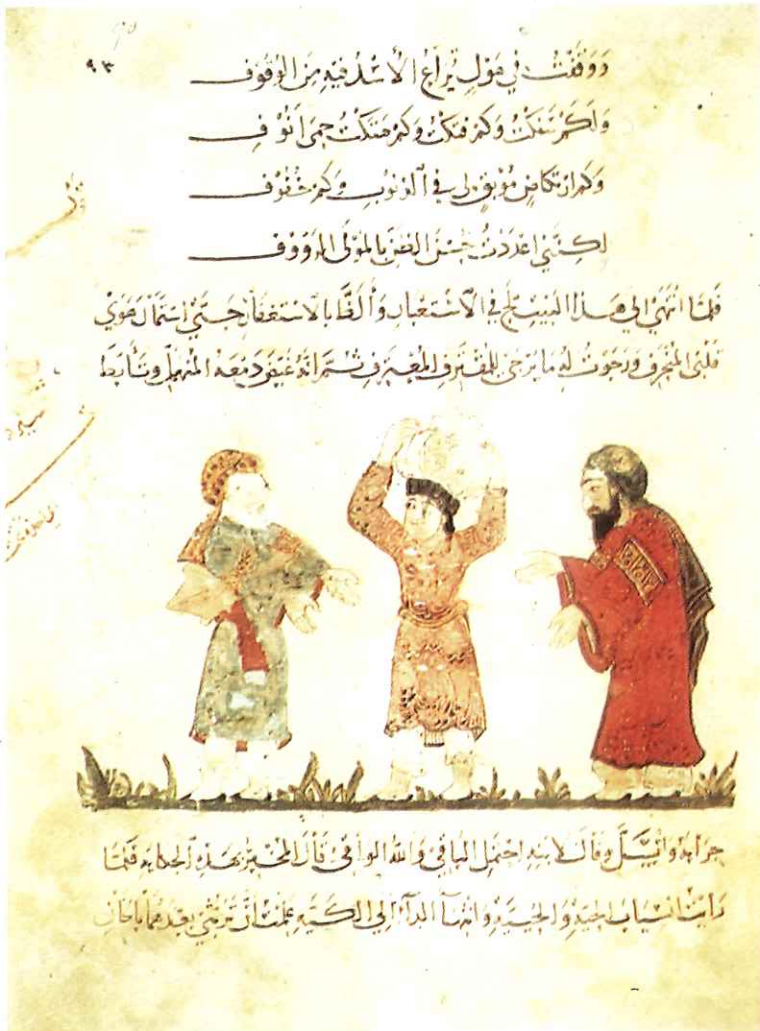 ٩٣
ووقفت في هول يراع الأسد فيه من الوقوف
ولكم سفكت وكم فتكت وكم هتكت حمى أنوف
وكم ارتكاض موبق لي في الذنوب وكم خفوف
لكنني اعددت حسن الظن بالمولى الرووف
فلما انتهى الى هذا البيت لج في الاستعبار وألظ بالاستغفار حتى استمال هوى
قلبي المنحرف ورجوت له ما يرجى للمقترف المعترف ثم انه غيض دمعه المنهل وتأبط
جرابه وانسل وقال لابنه احتمل الباقي والله الواقي قال المخبر بهذه الحكاية فلما
رأيت انسياب الحية والحيية وانتهآ الدآء الى الكية علمت ان تربثي بعدهما بالخان